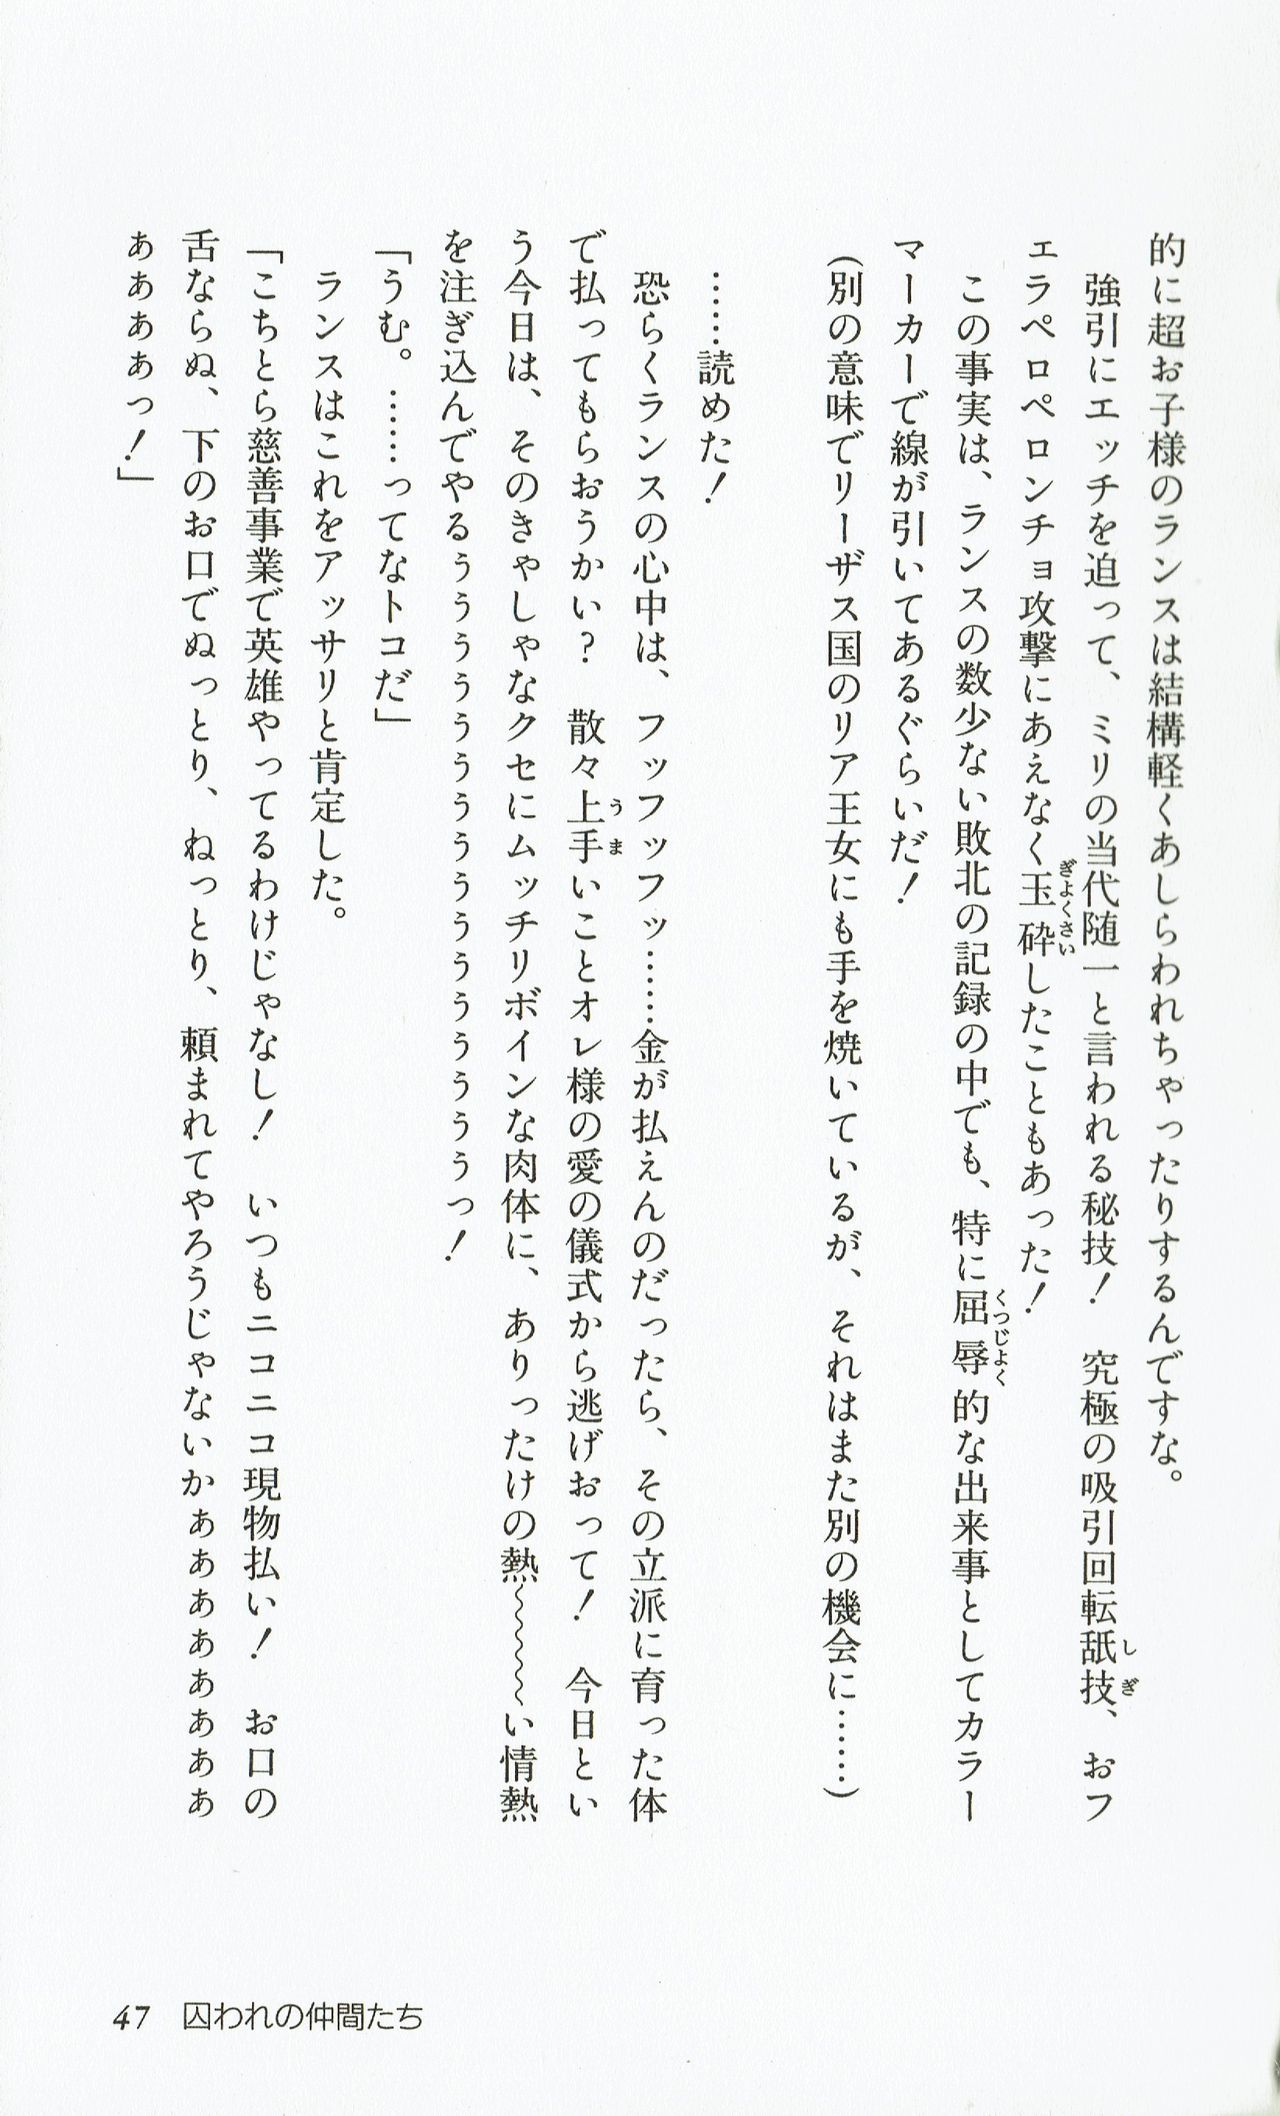 的に超お子様のランスは結構軽くあしらわれちゃったりするんですな。
強引にエッチを迫って、ミリの当代随一と言われる秘技！　究極の吸引回転舐技、おフ
ェラペロペロンチョ攻撃にあえなく玉砕したこともあった！
この事実は、ランスの数少ない敗北の記録の中でも、特に屈辱的な出来事としてカラー
マーカーで線が引いてあるぐらいだ！
（別の意味でリーザス国のリア王女にも手を焼いているが、それはまた別の機会に……）
……読めた！
恐らくランスの心中は、フッフッフッ……金が払えんのだったら、その立派に育った体
で払ってもらおうかい？　散々上手いことオレ様の愛の儀式から逃げおって！　今日とい
う今日は、そのきゃしゃなクセにムッチリボインな肉体に、ありったけの熱〜〜〜〜い情熱
を注ぎ込んでやるぅぅぅぅぅぅぅぅぅぅぅぅぅぅぅぅっ！
「うむ。……ってなトコだ」
ランスはこれをアッサリと肯定した。
「こちとら慈善事業で英雄やってるわけじゃなし！　いつもニコニコ現物払い！　お口の
舌ならぬ、下のお口でぬっとり、ねっとり、頼まれてやろうじゃないかぁぁぁぁぁぁぁぁ
ぁぁぁぁっ！」
47　囚われの仲間たち